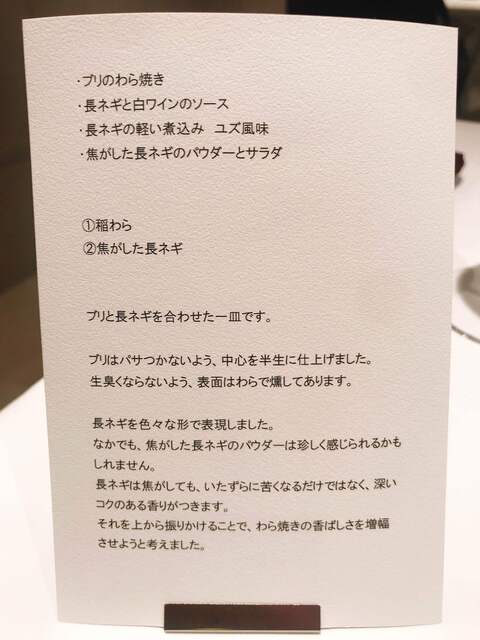 ・ブリのわら焼き
・長ネギと白ワインのソース
・長ネギの軽い煮込み　ユズ風味
・焦がした長ネギのパウダーとサラダ
①稲わら
②焦がした長ネギ
ブリと長ネギを合わせた一皿です。
ブリはパサつかないよう、中心を半生に仕上げました。
生臭くならないよう、表面はわらで燻してあります。
長ネギを色々な形で表現しました。
なかでも、焦がした長ネギのパウダーは珍しく感じられるかも
しれません。
長ネギは焦がしても、いたずらに苦くなるだけではなく、深い
コクのある香りがつきます。
それを上から振りかけることで、わら焼きの香ばしさを増幅
させようと考えました。